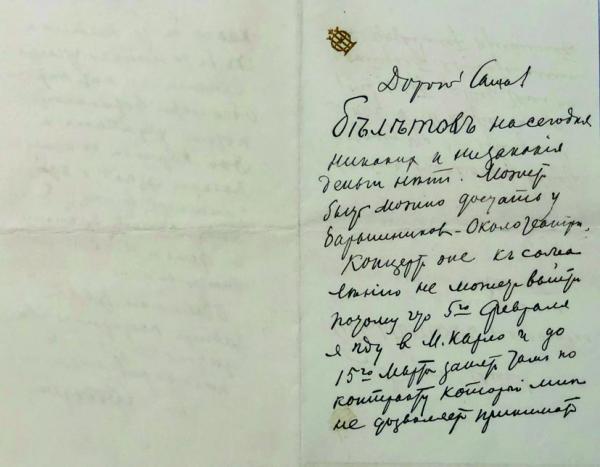 Дорогой Саша
Бѣлѣтовъ на сегодня
никаких и ни за какія
деньги нѣт. Может
быть можно достать у
Барышников - около театра.
Концерт оне къ сожа
лѣнію не может выйти
потому что 5го февраля
я ѣду в М. Карло и до
15го Марта занят там по
контракту который мнѣ
не дозволяет принимат